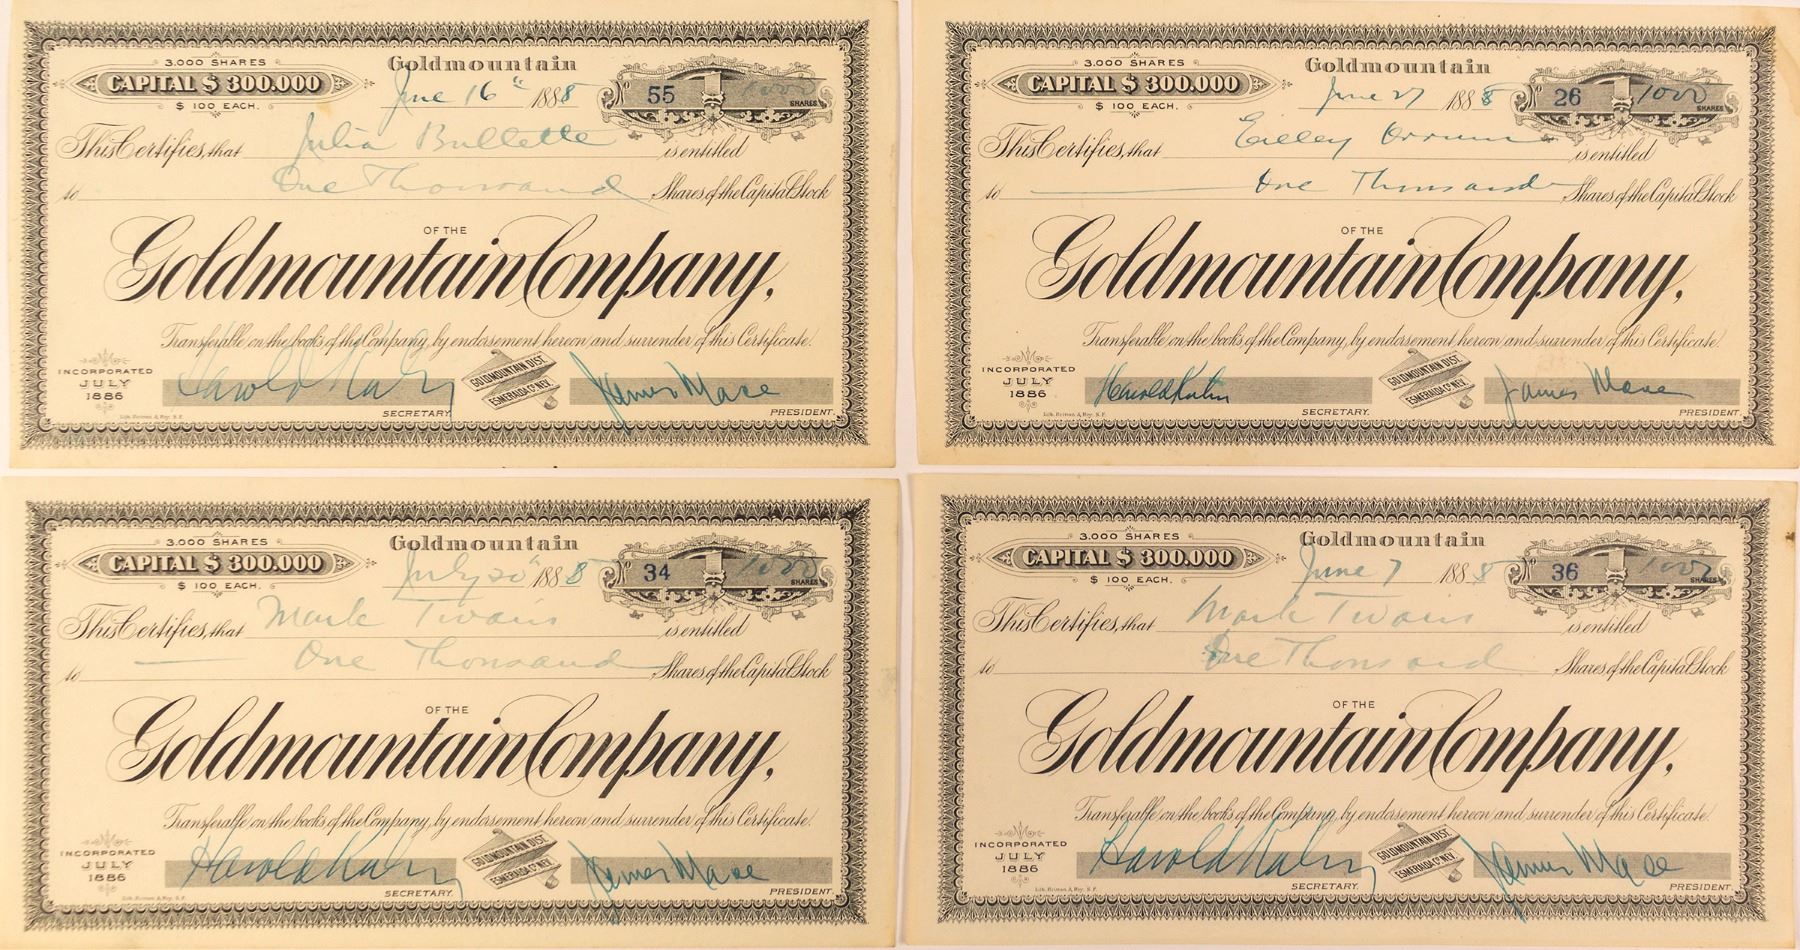 3.000 SHARES
CAPITAL $ 300.000
$ 100 EACH.
Goldmountain
June 16th 1888
No 55 1000 SHARES
This Certifies, that Julia Bullette is entitled
to One Thousand Shares of the Capital Stock
OF THE
Goldmountain Company,
Transferable on the books of the Company, by endorsement hereon and surrender of this Certificate.
INCORPORATED
JULY
1886
Harold Kahn
SECRETARY.
GOLDMOUNTAIN DIST.
ESMERALDA CO. NEV.
James Mace
PRESIDENT.
3.000 SHARES
CAPITAL $ 300.000
$ 100 EACH.
Goldmountain
June 27 1888
No 26 1000 SHARES
This Certifies, that Eilley Orrum is entitled
to One Thousand Shares of the Capital Stock
OF THE
Goldmountain Company,
Transferable on the books of the Company, by endorsement hereon and surrender of this Certificate.
INCORPORATED
JULY
1886
Harold Kahn
SECRETARY.
GOLDMOUNTAIN DIST.
ESMERALDA CO. NEV.
James Mace
PRESIDENT.
3.000 SHARES
CAPITAL $ 300.000
$ 100 EACH.
Goldmountain
July 20th 1888
No 34 1000 SHARES
This Certifies, that Mark Twain is entitled
to One Thousand Shares of the Capital Stock
OF THE
Goldmountain Company,
Transferable on the books of the Company, by endorsement hereon and surrender of this Certificate.
INCORPORATED
JULY
1886
Harold Kahn
SECRETARY.
GOLDMOUNTAIN DIST.
ESMERALDA CO. NEV.
James Mace
PRESIDENT.
3.000 SHARES
CAPITAL $ 300.000
$ 100 EACH.
Goldmountain
June 7 1888
No 36 1000 SHARES
This Certifies, that Mark Twain is entitled
to One Thousand Shares of the Capital Stock
OF THE
Goldmountain Company,
Transferable on the books of the Company, by endorsement hereon and surrender of this Certificate.
INCORPORATED
JULY
1886
Harold Kahn
SECRETARY.
GOLDMOUNTAIN DIST.
ESMERALDA CO. NEV.
James Mace
PRESIDENT.